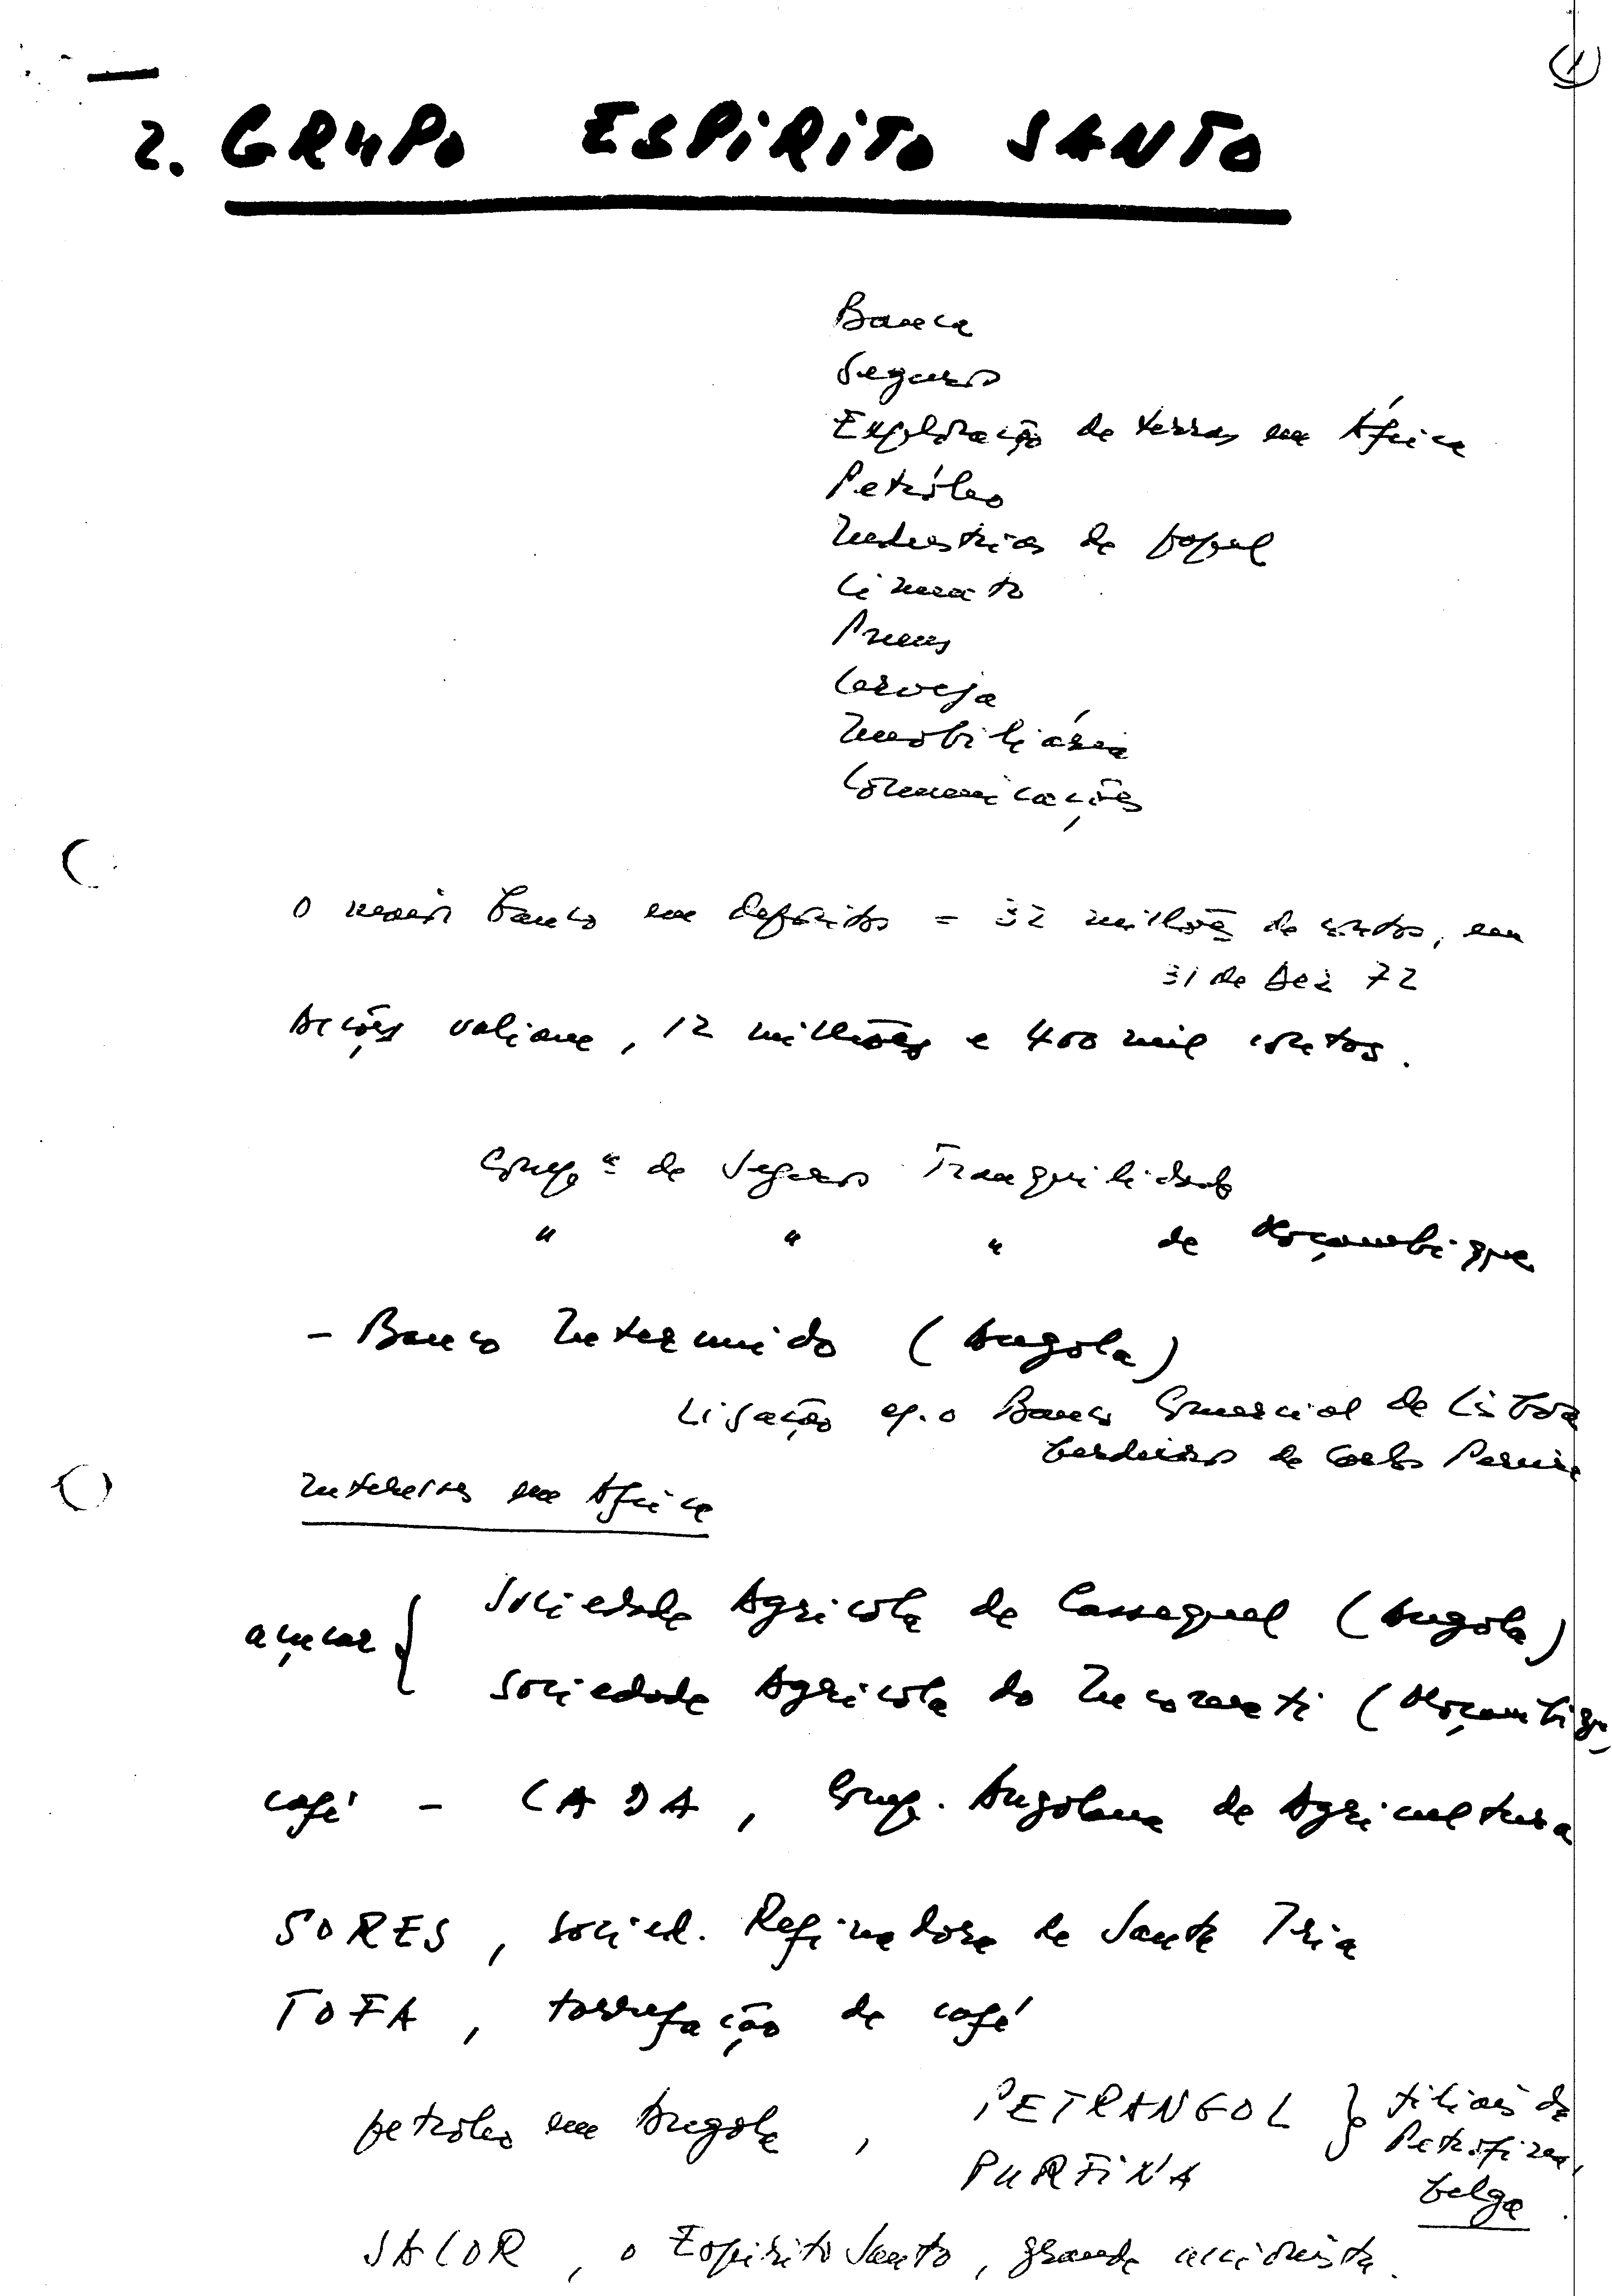 1
2. GRUPO ESPIRITO SANTO
Banca
Seguros
Exploração de terras em África
Petróleo
Industrias de papel
Cimento
Pneus
Cerveja
Imobiliária
Comunicações
O maior banco em depósitos = 32 milhões de contos, em
31 de Dez 72
Acções valiam, 12 milhões e 400 mil contos.
Compª de Seguros Tranquilidade
" " " de Moçambique
- Banco Interunido (Angola)
Ligação c/. o Banco Comercial de Lisboa
herdeiros de Carlos
Interesses em Africa
açucar { Sociedade Agricola de Cassequel (Angola)
Sociedade Agricola do Incomati (Moçambique
café - CADA, Comp. Angolana de Agricultura
SORES, socied. Refinadora de Santa Iria
TOFA, torrefação de café
petróleo em Angola, PETRANGOL } filiais da
PURFINA Petrofina,
belga
SACOR, o Espirito Santo, grande accionista.